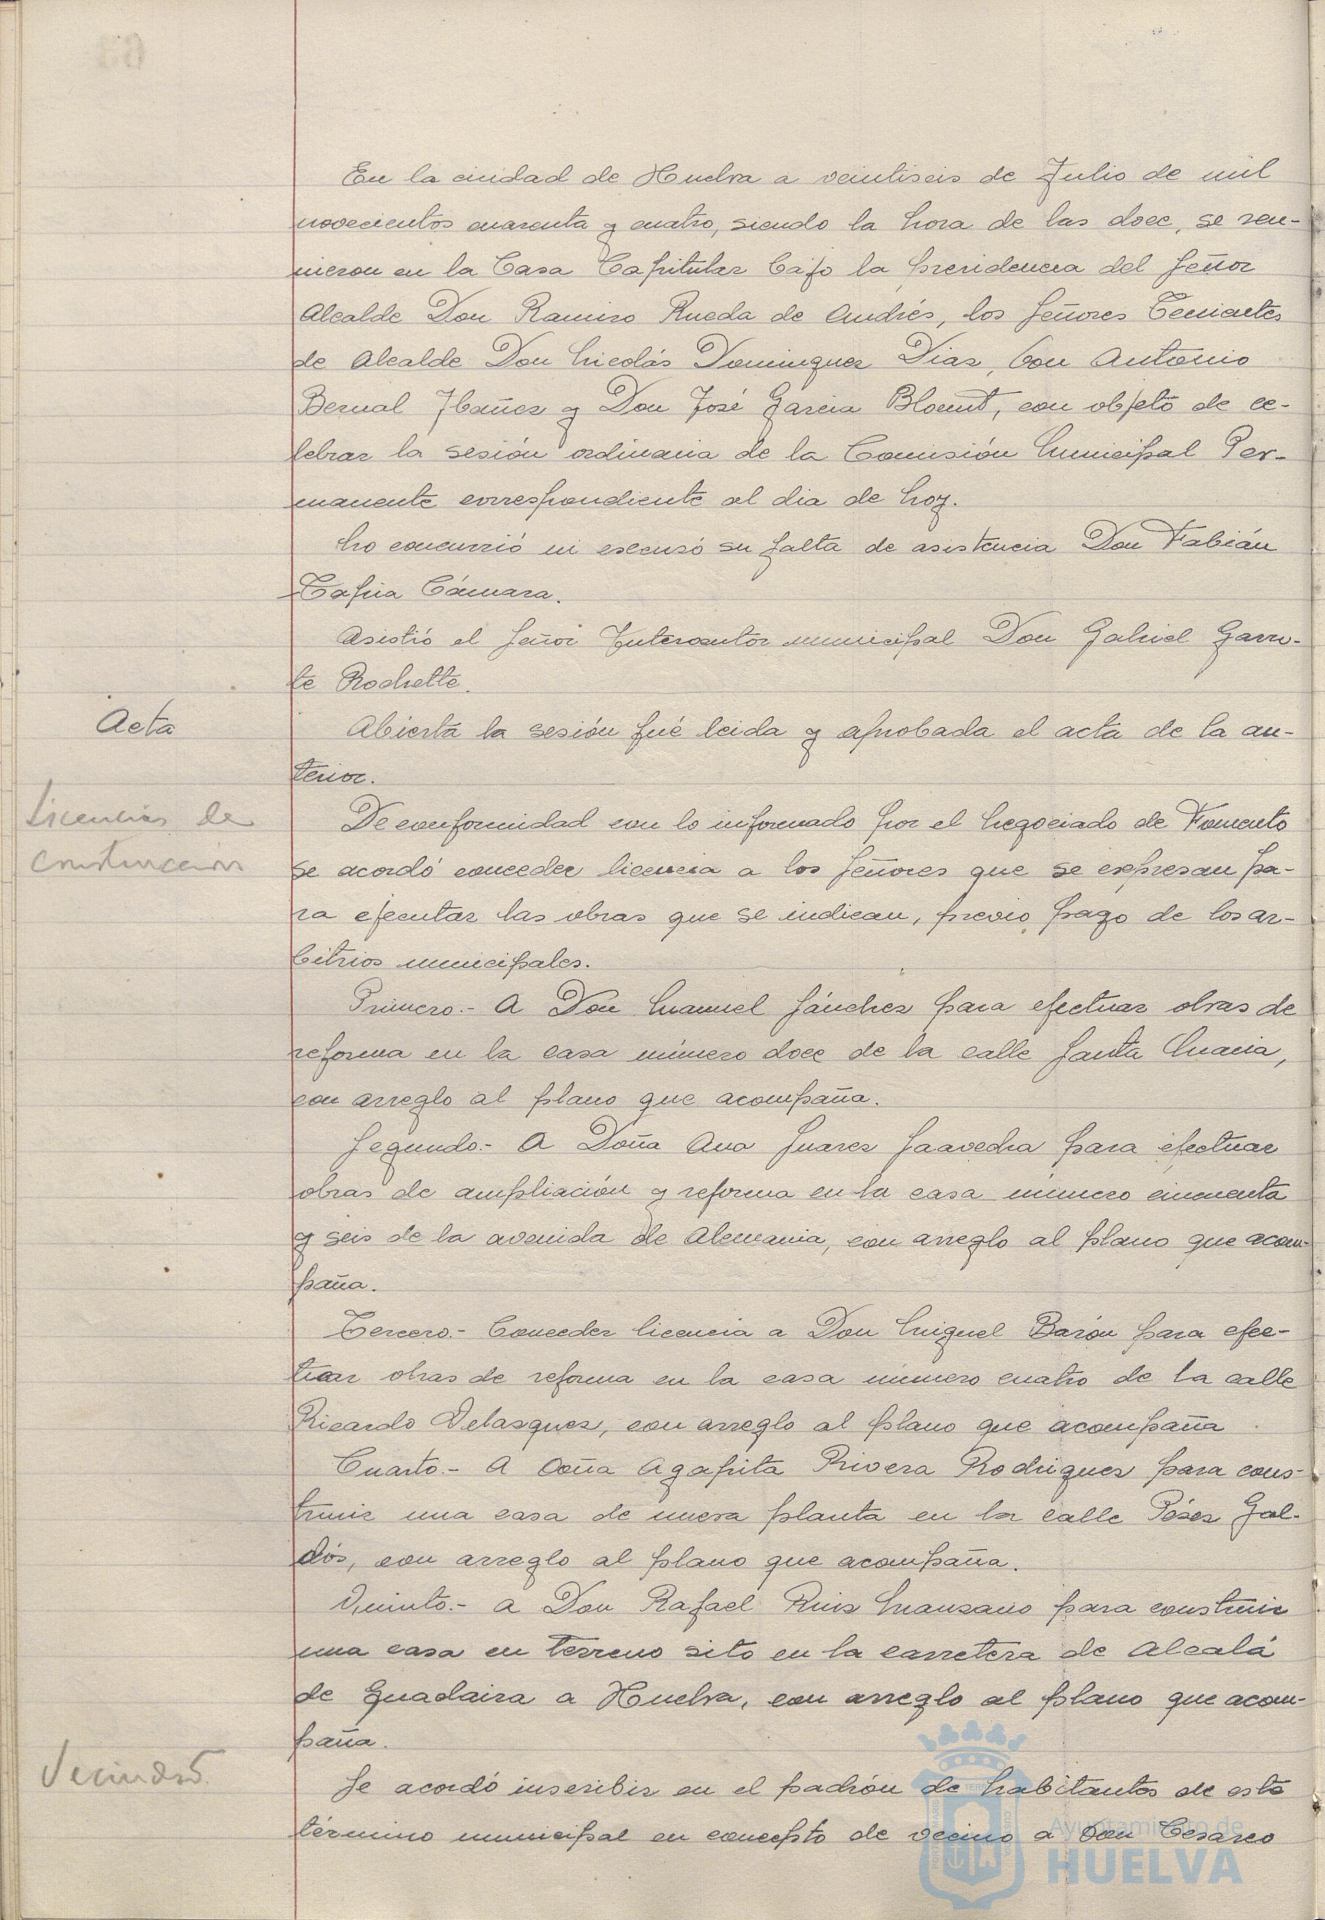 En la ciudad de Huelva a veintiseis de Julio de mil
novecientos cuarenta y cuatro, siendo la hora de las doce, se reu-
nieron en la Casa Capitular bajo la presidencia del Señor
Alcalde Don Ramiro Rueda de Andrés, los Señores Tenientes
de Alcalde Don Nicolás Dominguez Diaz, Don Antonio
Bernal Ibañez y Don José Garcia Blount, con objeto de ce-
lebrar la sesión ordinaria de la Comisión Municipal Per-
manente correspondiente al dia de hoy.
No concurrió ni escusó su falta de asistencia Don Fabián
Tapia Cámara.
Asistió el Señor Interventor municipal Don Gabriel Garro-
te Rochette.
Acta
Abierta la sesión fué leida y aprobada el acta de la an-
terior.
Licencias de
construccion
De conformidad con lo informado por el Negociado de Fomento
se acordó conceder licencia a los Señores que se expresan pa-
ra ejecutar las obras que se indican, previo pago de los ar-
bitrios municipales.
Primero.- A Don Manuel Sánchez para efectuar obras de
reforma en la casa número doce de la calle Santa Maria,
con arreglo al plano que acompaña.
Segundo.- A Doña Ana Suarez Saavedra para efectuar
obras de ampliación y reforma en la casa número cincuenta
y seis de la avenida de Alemania, con arreglo al plano que acom-
paña.
Tercero.- Conceder licencia a Don Miguel Barón para efec-
tuar obras de reforma en la casa número cuatro de la calle
Ricardo Velazquez, con arreglo al plano que acompaña
Cuarto.- A Doña Agapita Rivera Rodriguez para cons-
truir una casa de nueva planta en la calle Pérez Gal-
dós, con arreglo al plano que acompaña.
Quinto.- A Don Rafael Ruiz Manzano para construir
una casa en terreno sito en la carretera de Alcalá
de Guadaira a Huelva, con arreglo al plano que acom-
paña.
Vecindad
Se acordó inscribir en el padrón de habitantes de este
término municipal en concepto de vecino a Don Cesareo
Ayuntamiento de
HUELVA